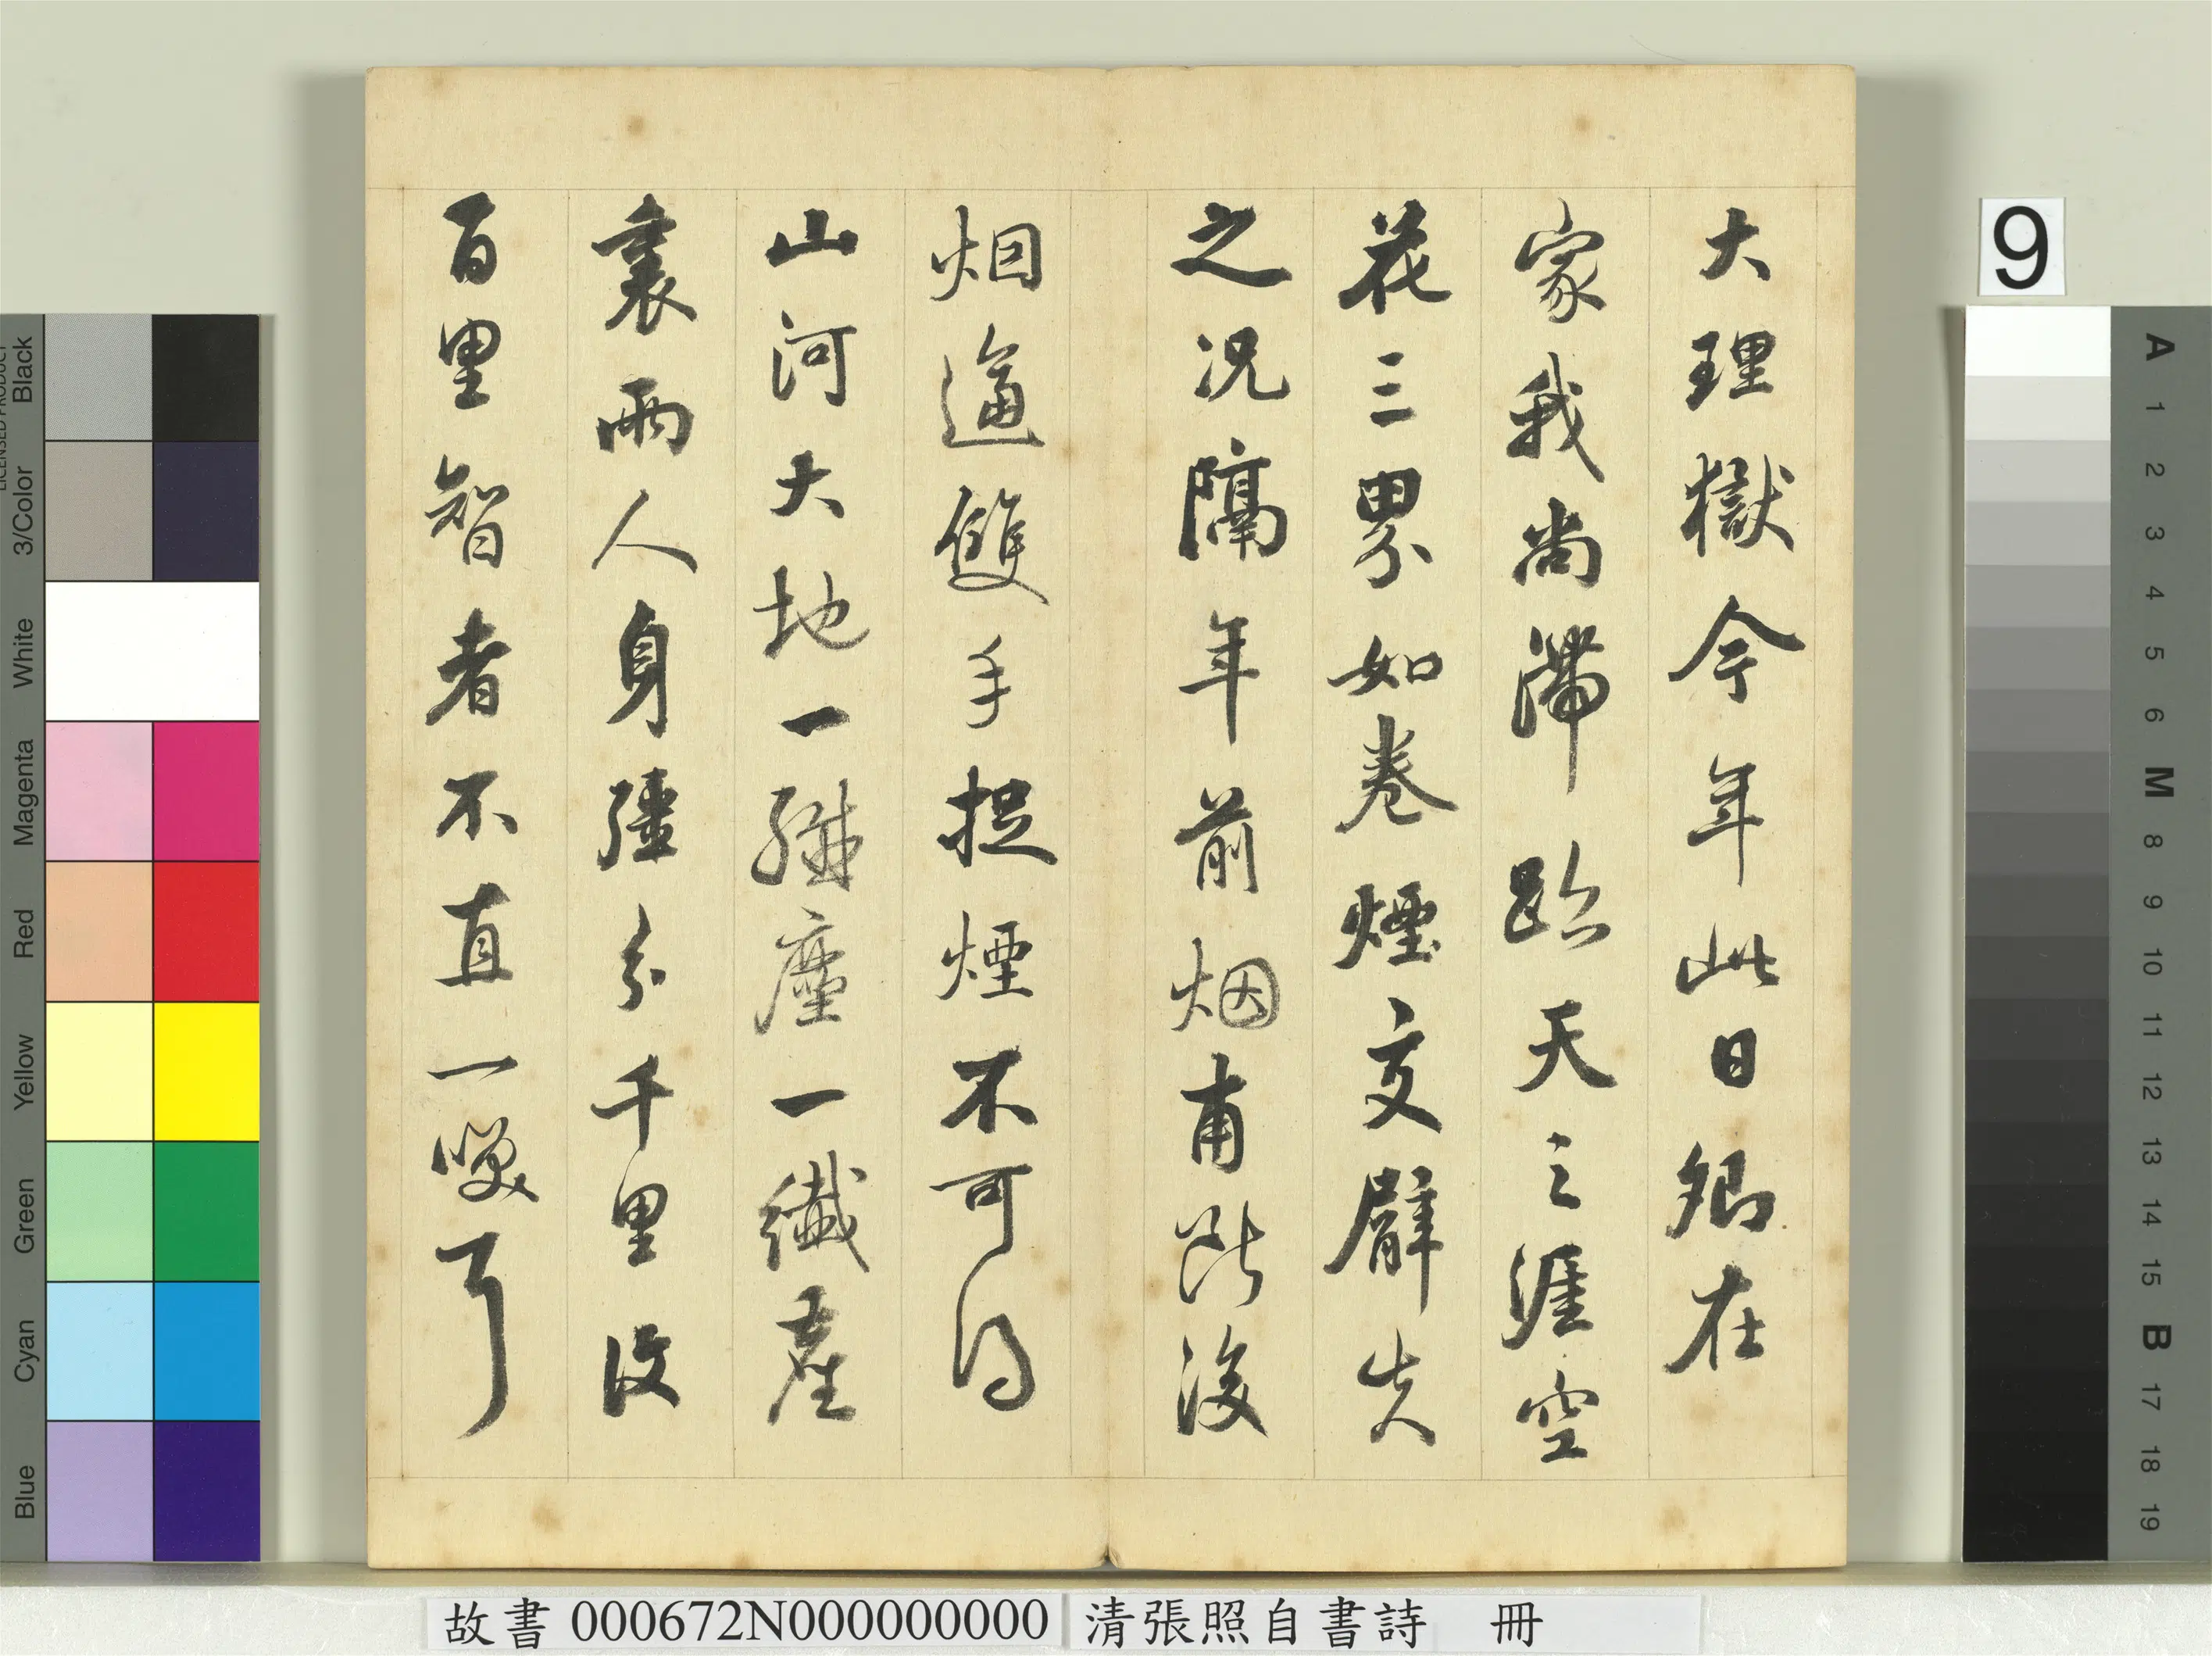 大理獄今年此日卿在
家我尚滯跡天之涯空
花三界如卷煙交臂失
之况隔年前烟甫断後
烟逼雙手捉煙不可得
山河大地一塵一纖塵
裏兩人身彊分千里
百里智者不直一笑了
故書 000672N000000000 清張照自書詩 冊
9
Black
3/Color
White
Magenta
Red
Yellow
Green
Cyan
Blue
A
1
2
3
4
5
6
M
8
9
10
11
12
13
14
15
B
17
18
19